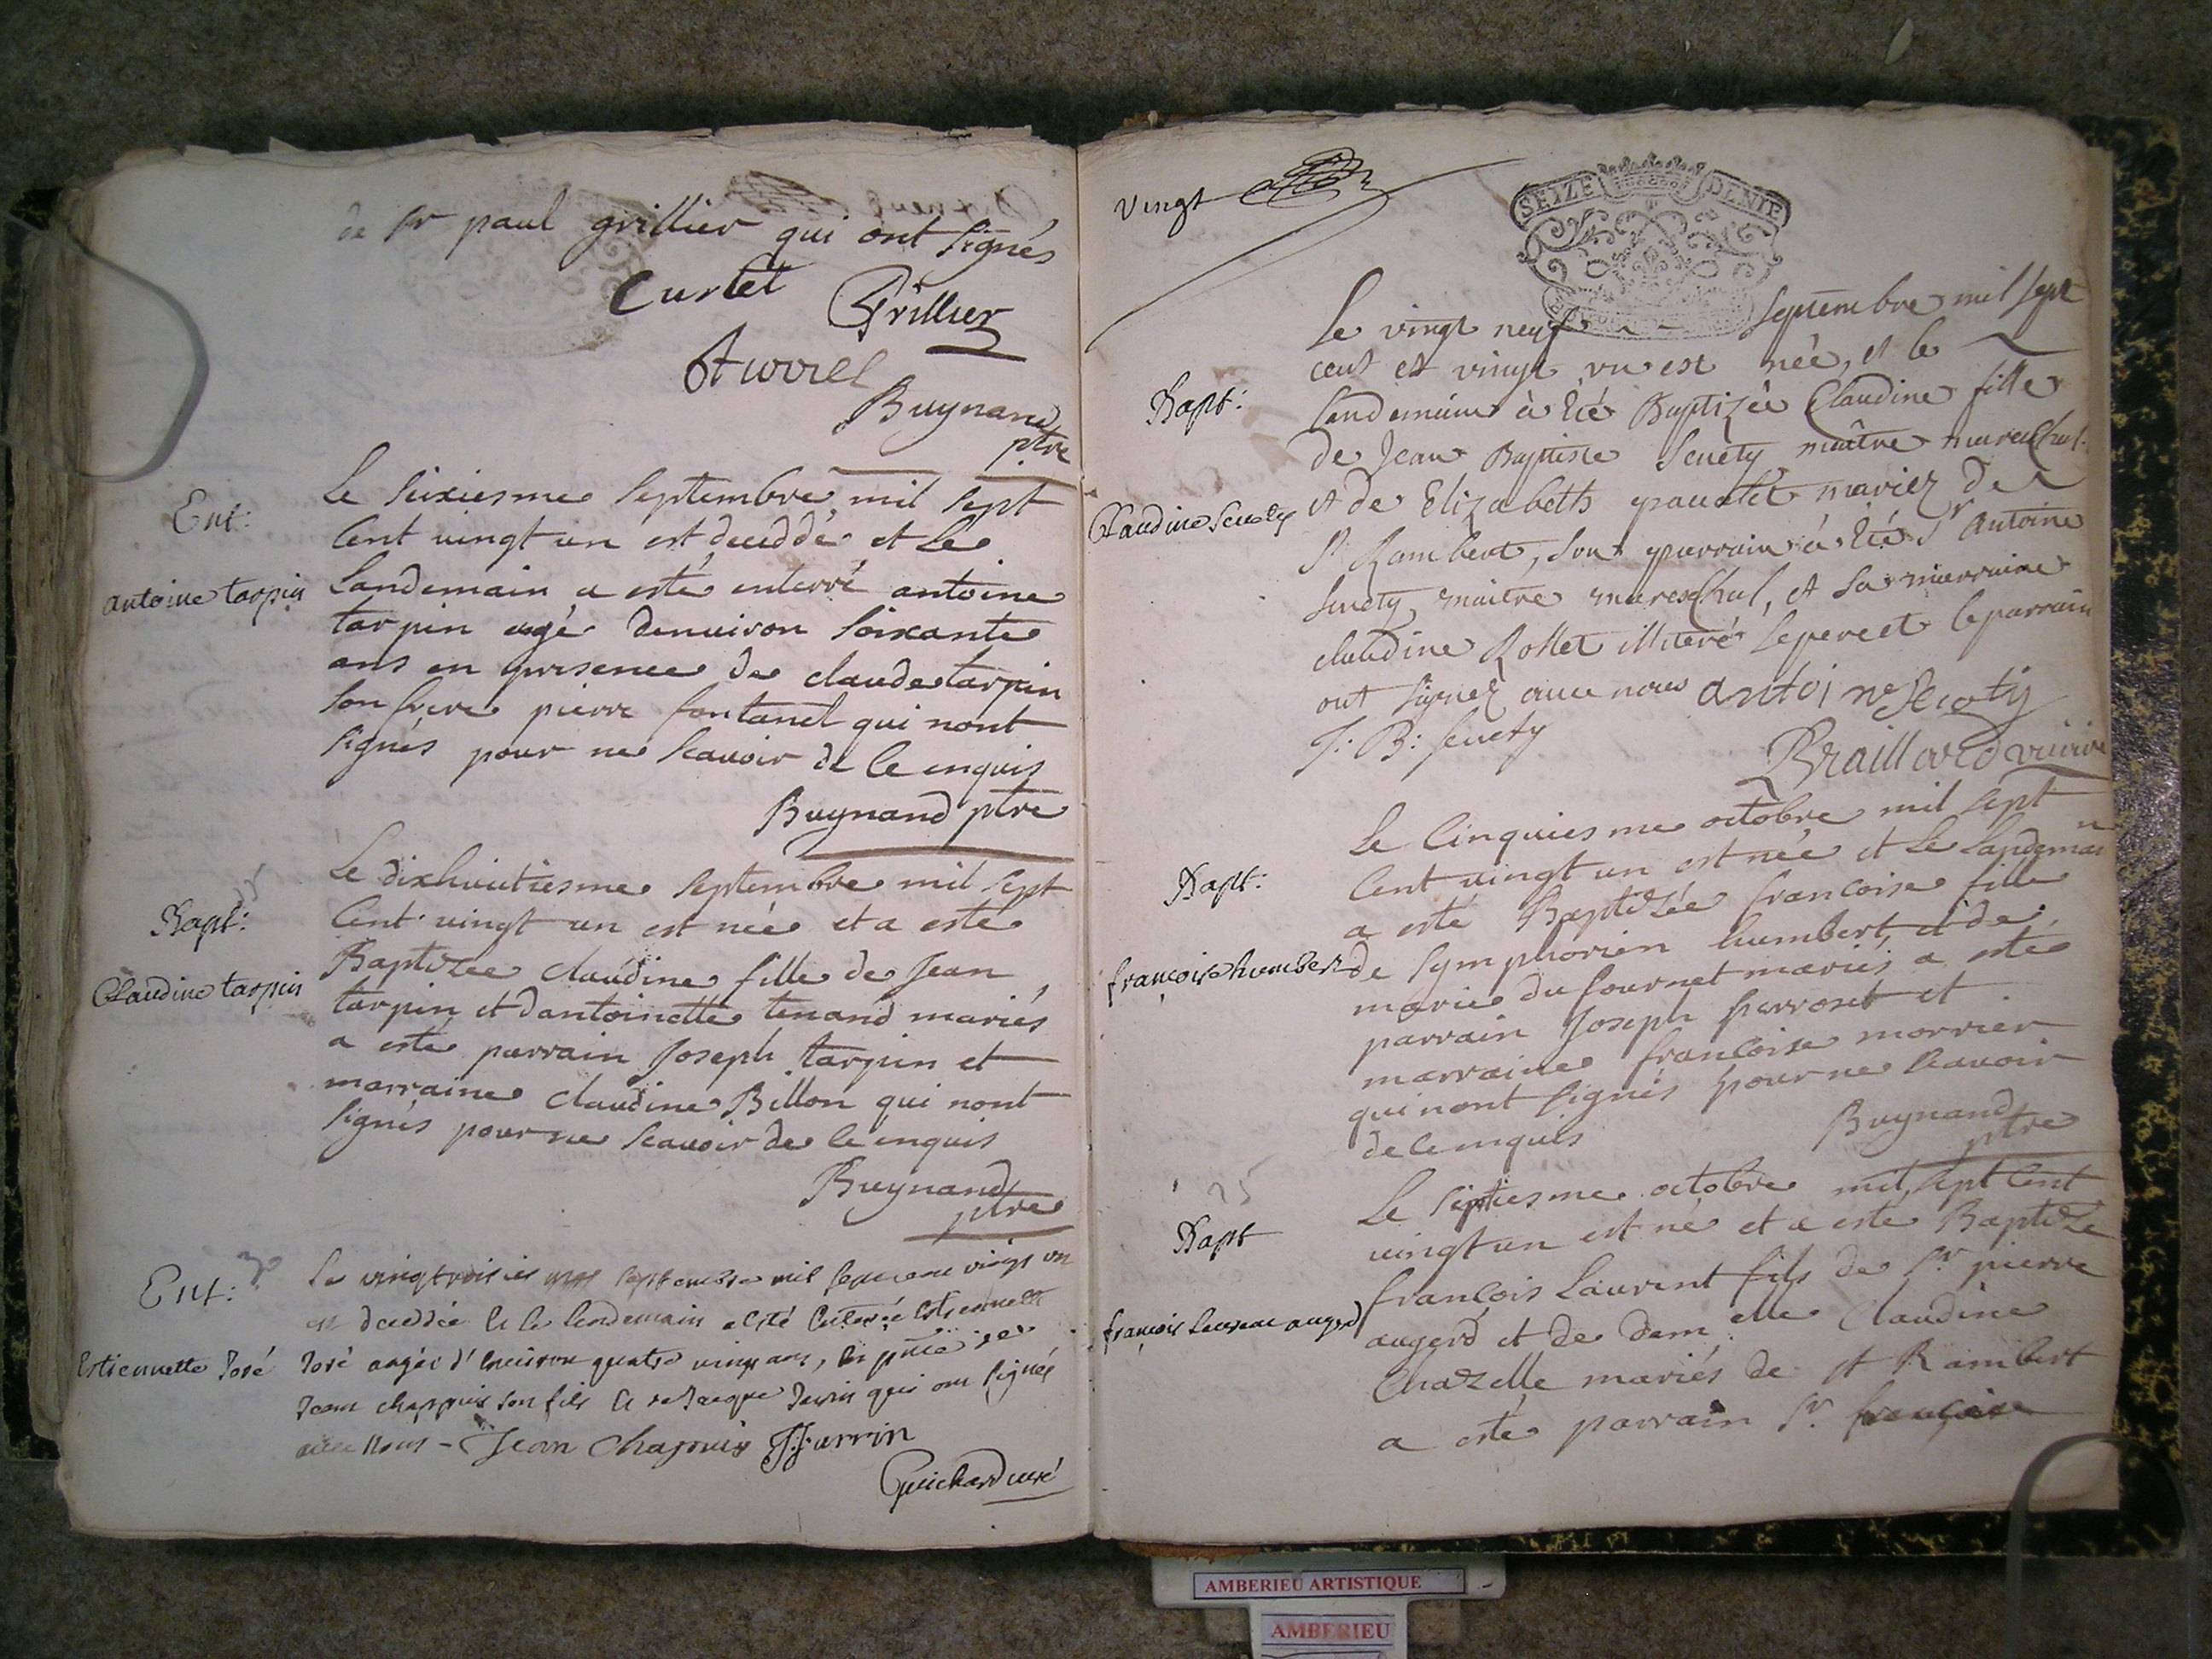 de sr paul grillier qui ont signés
Curtet
Grillier
Aurrel
Buynand
ptre
Ent:
antoine tarpin
Le sixiesme septembre mil sept
cent vingt un est decedde et le
landemain a esté enterré antoine
tarpin agé denuiron soixante
ans en presence de claude tarpin
son frere pierre fontanel qui nont
signés pour ne scauoir de ce enquis
Buynand ptre
Bapt:
Claudine tarpin
Le dixhuictiesme septembre mil sept
cent vingt un est née et a esté
Baptizee claudine fille de Jean
tarpin et dantoinette tenand mariés
a esté parrain Joseph tarpin et
marraine claudine Billon qui nont
signés pour ne scauoir de ce enquis
Buynand
ptre
Ent:
Estiennette Joré
Le vingtroisiesme septembre mil sept cent vingt vn
est deceddée & le lendemain a esté enterrée Estiennette
Joré aagée d'enuiron quatre vingt ans, en pnce de
Jean chappuis son fils & de Jacque Juvrin qui ont signés
auec nous - Jean Chapuis JJuvrin
Guichard curé
vingt
SEIZE DENIE
Bapt:
Claudine Seucty
Le vingt neuf septembre mil sept
cent et vingt vn est née, et le
lendemain à été Baptizée Claudine fille
de Jean Baptiste Seucty maître mareschal
et de Elizabeth pauatet mariez de
St Rambert, son parrain à été Sr Antoine
Seucty, maitre mareschal, et sa marraine
claudine Rollet illiteré le pere et le parrain
ont signez auec nous antoine Seucty
J: B: Seucty
Braillard vicaire
Bapt:
françoise humbert
Le cinquiesme octobre mil sept
cent vingt un est née et le landemain
a esté Baptizée francoise fille
de symphorien humbert, et de
marie du fournet mariés a esté
parrain Joseph perroset et
marraine francoise morrier
qui nont signés pour ne scauoir
de ce enquis
Buynand
ptre
25
Bapt
françois Laurent augerd
Le septiesme octobre mil sept cent
vingt un est né et a esté Baptizé
françois Laurent fils de sr pierre
augerd et de damelle claudine
Chazelle mariés de st Rambert
a esté parrain sr françois
AMBERIEU ARTISTIQUE
AMBERIEU